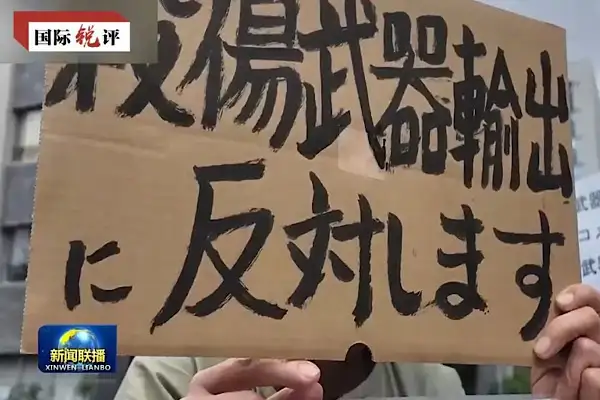 国际锐评
殺傷武器輸出
に反対します
新闻联播
XINWEN LIANBO
武器
コス
武器